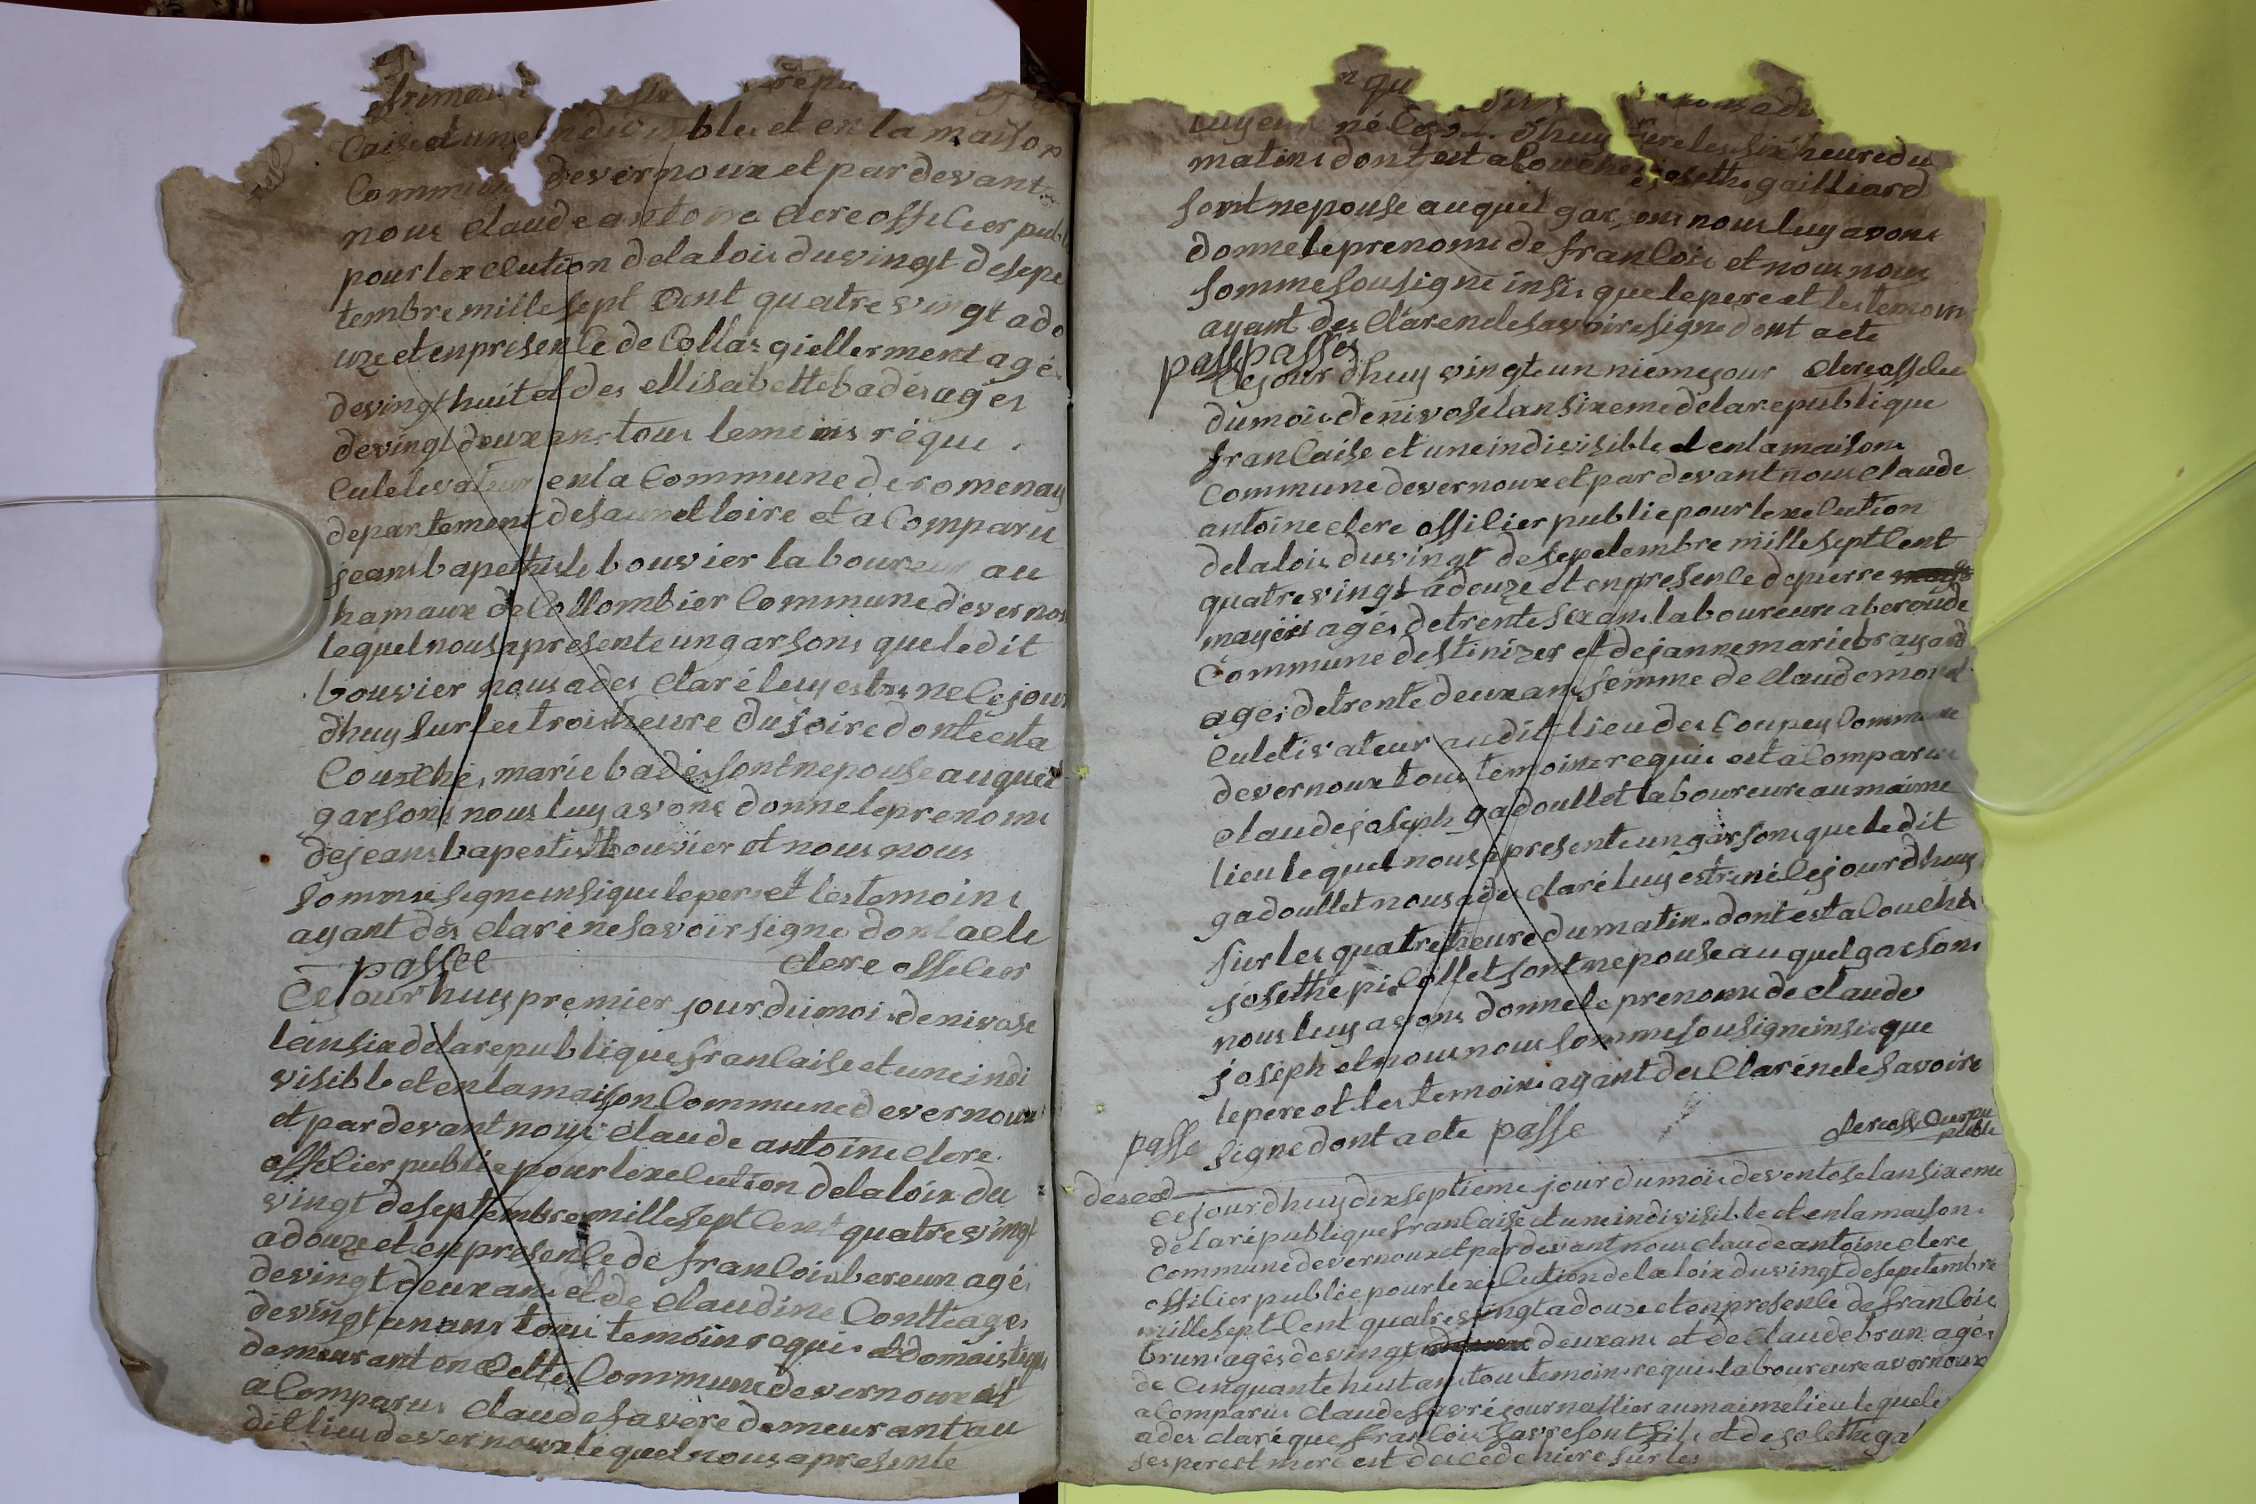 frimai
Caise et une indivisible et en la maison
Commune devernoux et par devant
nous Claude antoine Clere offilier publ
pour lexelution delalois duvingt desepe
tembre mille sept Cent quatre vingt ado
uze et enpresenle de Collas giellerment agé
devingt huit et des ellisabette badés agés
devingt deux ans tous temoins réqui
Culetivateur enla Commune de romenay
departement desaune et loire et a Comparu
jeans bapethiste bouvier laboureur au
hamaux de Collombier Commune devernou
lequel nous apresente un garsons que le dit
bouvier nous a des Claré luy estre ne Cejour
dhuy sur les trois heure du soire dont esta
Couxché marie badés sont nepouse auquel
garsons nous luy avons donne le prenoms
dejeans bapestiste bouvier et nous nous
somme signe insique le pere et les temoins
ayant des Claré ne savoir signe dont acte
passee Clere offilier
Cejourhuy premier jour dumois denivose
lansix de larepublique franlaise et une indi
visible et en la maison Commune devernoux
et pardevant nous Claude antoine Clere
offilier publie pour lexelution delaloix du
vingt deseptembre mille sept Cent quatre vingt
adouze et enpresenle de franlois bereun agé
devingt deux ans et de Claudine Contte agés
devingt un ans tous temoin requis et domaistique
demeurant en Cette Commune devernoux et
a Comparus Claude favere demeurant au
dit lieu devernoux lequel nous apresente
qu
luy né Ce dhuy sur les six heure du
matins dont est a Couche josethe gailliard
sont nepouse auquel garsons nous luy avons
donne le prenoms de franlois et nous nous
somme sousigne insis que le pere et les temoin
ayant des Claré ne le savoire signe dont acte
passé passes
Cejour dhuy vingte un nieme jour Clere offilie
du mois de nivose lan sixeme de larepublique
franlaise et une indivisible et en la maisons
Commune devernoux et par devant nous Claude
antoine Clere offilier publie pour lexelution
delalois duvingt desepetembre mille sept Cent
quatre vingt adouze et enpresenle de pierre
mayeii agés detrente sex ans laboureure a beroude
Commune destinizer et dejannemarie brayard
agés detrente deux ans femme de Claude morel
Culetivateur audit lieu des Coupey Commune
devernoux tous temoins requis est a Comparus
Claude joseph gadoullet laboureure au maime
lieu lequel nous apresente un garsons que le dit
gadoullet nous a des Claré luy estre né Cejour dhuy
sur les quatre heure du matin dont est a Couche
josethe picollet sont nepouse auquel garsons
nous luy avons donne le prenoms de Claude
joseph et nous nous somme sousigne insis que
le pere et les temoins ayant des Claré ne le savoire
passe signe dont acte passe Clere offilier pu
publie
deced
Cejour dhuy dix septieme jour du mois deventose lan sixeme
de larepublique franlaise et une indivisible et en la maisons
Commune devernoux et par devant nous Claude antoine Clere
offilier publie pour lexelution delaloix duvingt desepetembre
mille sept Cent quatre vingt adouze et enpresenle de franlois
brun agés devingt deux ans et de Claude brun agés
de Cinquante huit ans tous temoins requis laboureure a vernoux
a Comparus Claude favre journallier au maime lieu lequel
a des Claré que franlois favre sont fils et de josethe ga
ses pere et mere est décéde hiere sur les